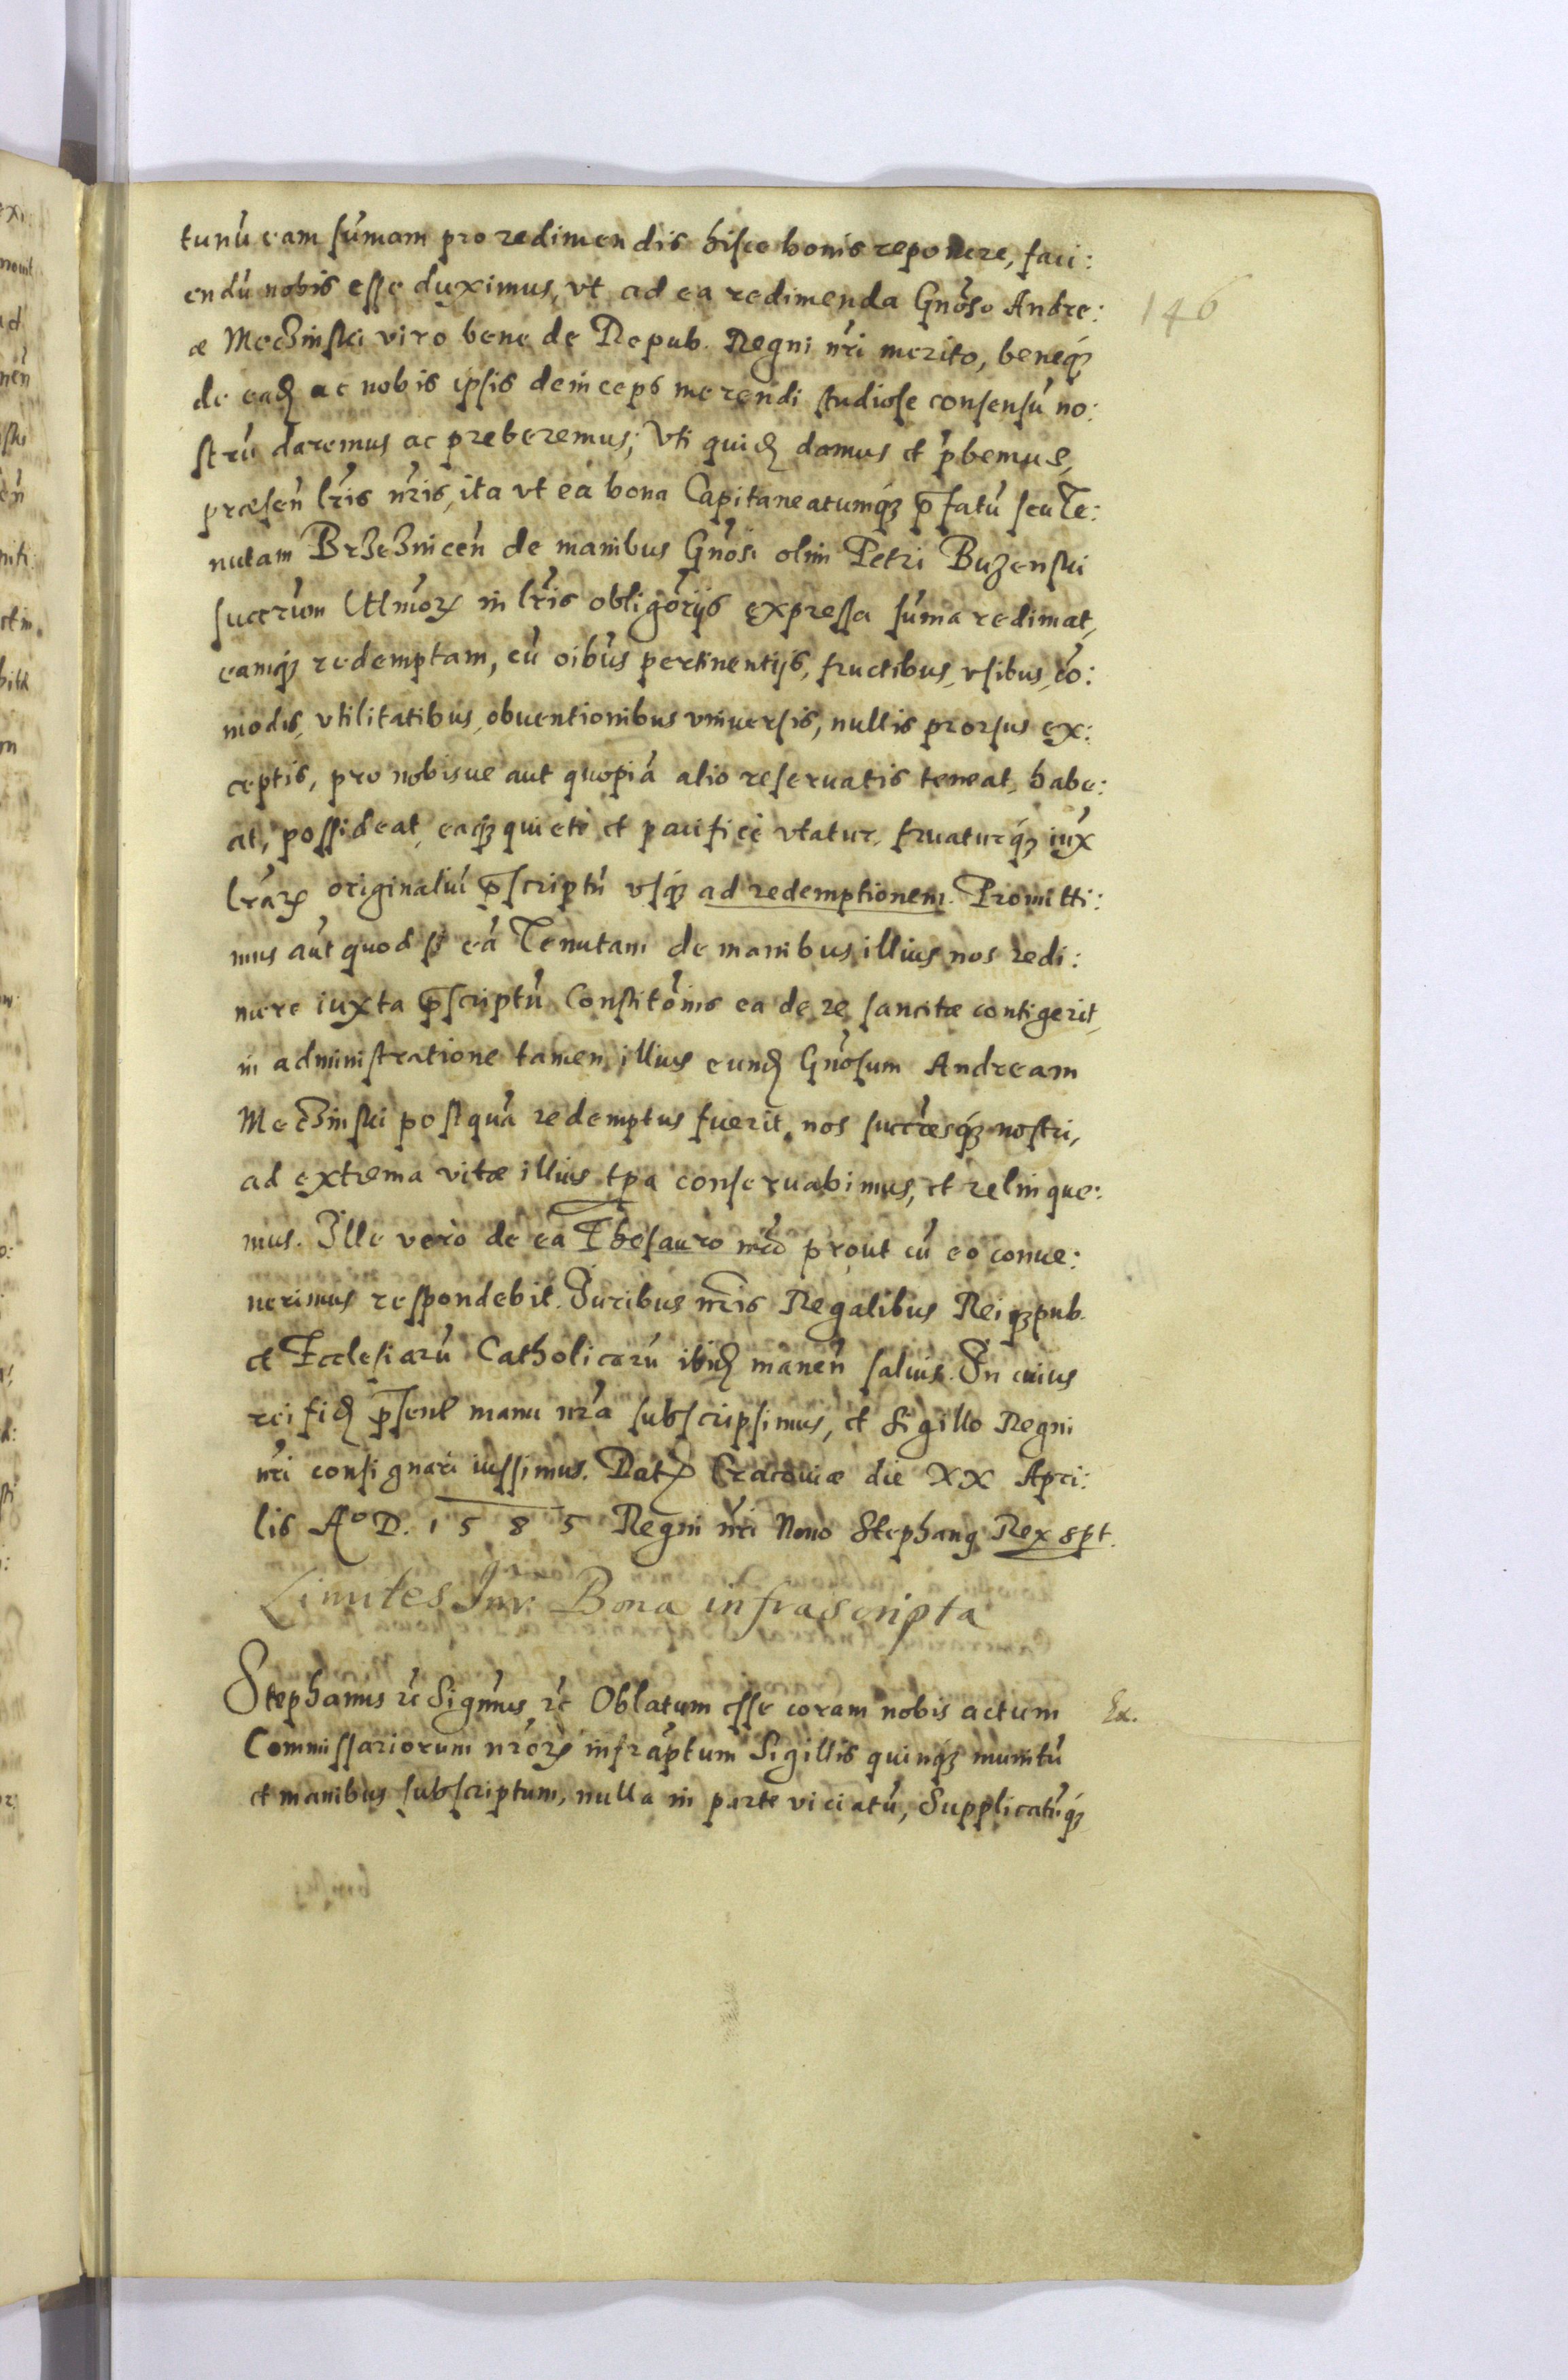 tunū eam sūmam pro redimendis hisce bonis reponere, faci:
endū nobis esse duximus, vt ad ea redimenda Gnōso Andre:
146
æ Meczinski viro bene de Repub. Regni nr̄i merito, beneq́
de eadē ac nobis ipsis deinceps merendi studiose consensū no:
strū daremus ac preberemus; Vti quidē damus et p̄bemus,
præsen̄ lr̄is nr̄is, ita vt eā bona Capitaneatumq́ p̄fatū seu Te:
nutam Brzeznicen̄ de manibus Gnōsi olim Petri Buzenski
succr̄um Vltimōꝝ in lr̄is obligōrijs expressa sūma redimat,
eamq́ redemptam, cū oībus pertinentijs, fructibus, vsibus, cō:
modis, vtilitatibus, obuentionibus vniuersis, nullis prorsus ex:
ceptis, pro nobisue aut quopiā alio reseruatis teneat, habe:
at, possideat, eaq́ quietè et pacificè vtatur, fruaturq́, iux̄
lr̄aꝝ originaliū p̄scriptū vsq́ ad redemptionem. Promitti:
mus aūt quod si eā Tenutam de manibus illius nos redi:
mere iuxta p̄scriptū Constitōnis ea de re sancitæ contigerit,
in administratione tamen illius eundē Gnōsum Andream
Meczinski postquā redemptus fuerit, nos succr̄esq́ nostri,
ad extrema vitæ illius tp̄a conseruabimus, et relinque:
mus. Ille verò de ea Thesauro nr̄o prout cū eo conue:
nerimus respondebit. Iuribus nr̄is Regalibus Reiq́pub.
et Ecclesiarū Catholicarū ibidē manen̄ saluis. In cuius
rei fidē p̄sent̄ manu nr̄a subscripsimus, et Sigillo Regni
nr̄i consignari iussimus. Datꝝ Cracoviæ die XX Apri:
lis Aº D. 1585 Regni nr̄i Nono Stephanꝰ Rex spt.
Limites Inr. Bona infrascripta
Stephanus rc̄ Signūs rc̄ Oblatum esse coram nobis actum
Ex.
Commissariorum nr̄oꝝ infrāptum Sigillis quinq́ munitū
et manibus subscriptum, nulla in parte viciatū, Supplicatūq́